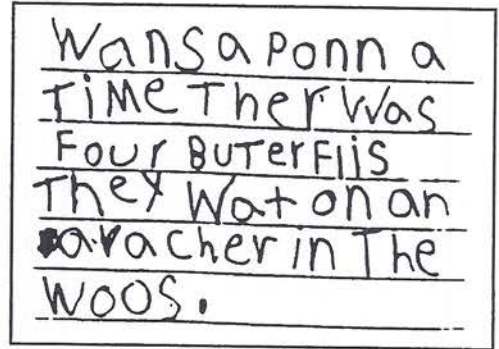 Wansa Ponn a
TiMe Ther Was
Four BuTerFliis
They Wat on an
avacher in The
WOOS.